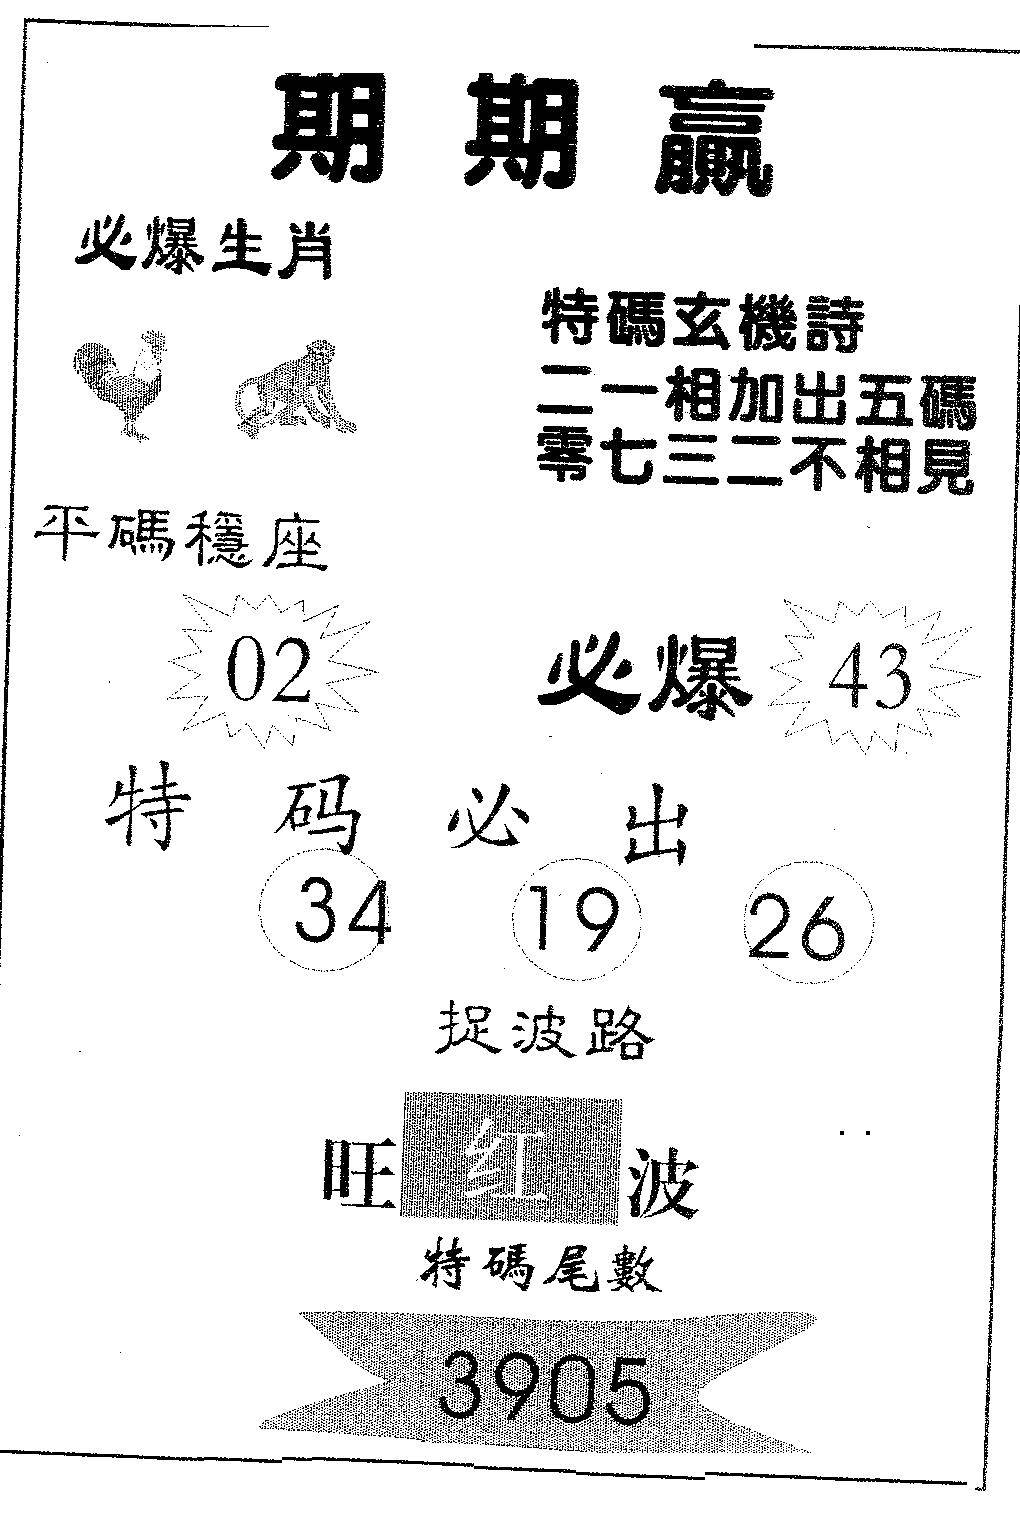 期期赢
必爆生肖
特碼玄機詩
二一相加出五碼
零七三二不相見
平碼穩座
02
必爆 43
特码必出
34 19 26
捉波路
旺红波
特碼尾數
3905